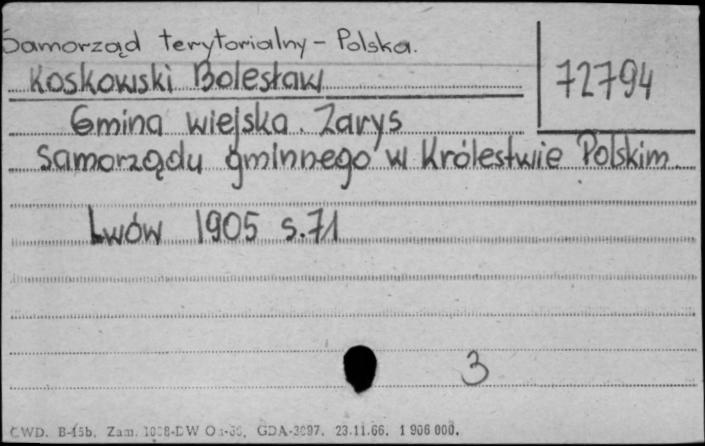 Samorząd terytorialny - Polska.
Koskowski Bolesław
72794
Gmina wiejska. Zarys
samorządu gminnego w Królestwie Polskim.
Lwów 1905 s.71
3
CWD. B-15b. Zam. GDA-3697. 23.11.66. 1 906 000.